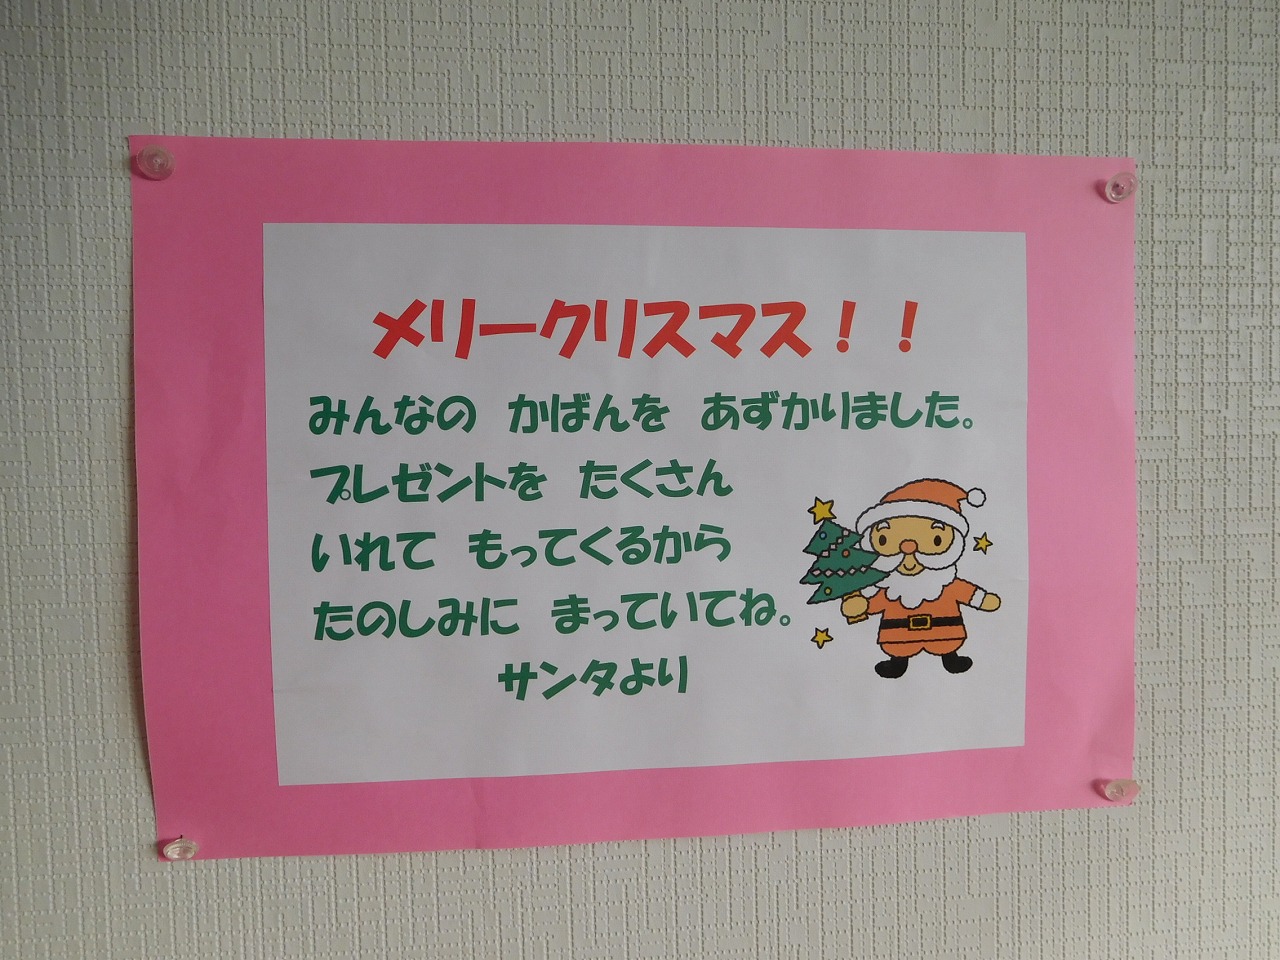 メリークリスマス！！
みんなの　かばんを　あずかりました。
プレゼントを　たくさん
いれて　もってくるから
たのしみに　まっていてね。
サンタより